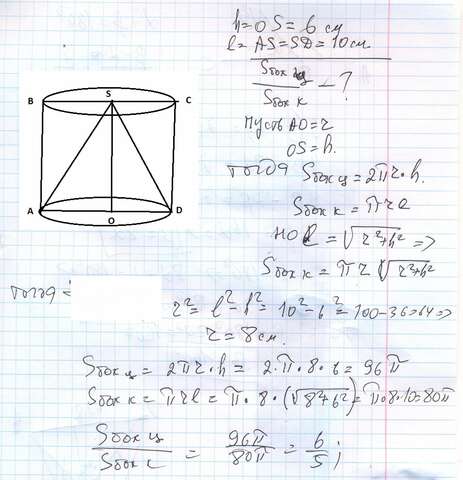 h = OS = 6 см
l = AS = SD = 10 см
Sбок ц / Sбок к – ?
Пусть AO = r
OS = h.
тогда Sбок ц = 2πr·h.
Sбок к = πrl
но l = √(r²+h²) =>
Sбок к = πr√(r²+h²)
B S C
A O D
тогда:
r² = l² - h² = 10² - 6² = 100 - 36 = 64 =>
r = 8 см.
Sбок ц = 2πr·h = 2·π·8·6 = 96π
Sбок к = πrl = π·8·(√(8²+6²)) = π·8·10 = 80π
Sбок ц / Sбок к = 96π / 80π = 6 / 5 ;